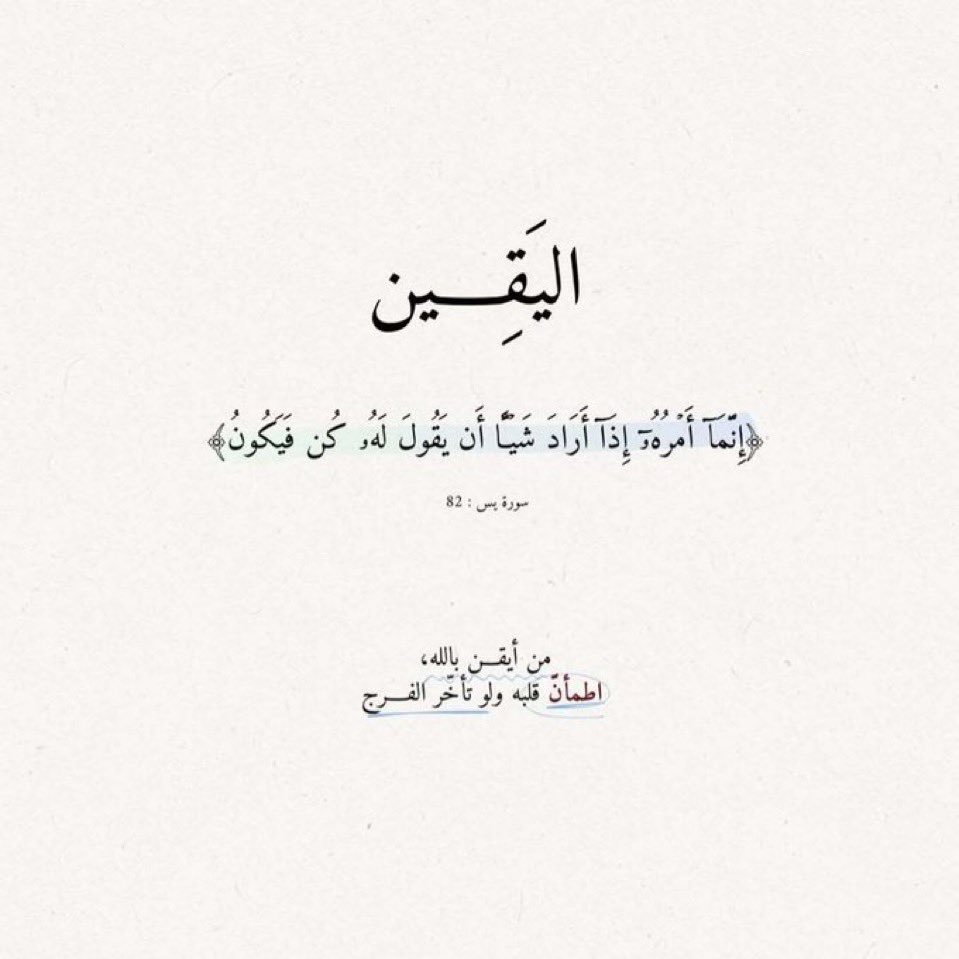 اليَقِـــين
﴿إِنَّمَآ أَمْرُهُۥٓ إِذَآ أَرَادَ شَيْـًٔا أَن يَقُولَ لَهُۥ كُن فَيَكُونُ﴾
سورة يس : 82
من أيقــن بالله،
اطمأنّ قلبه ولو تأخّر الفــرج